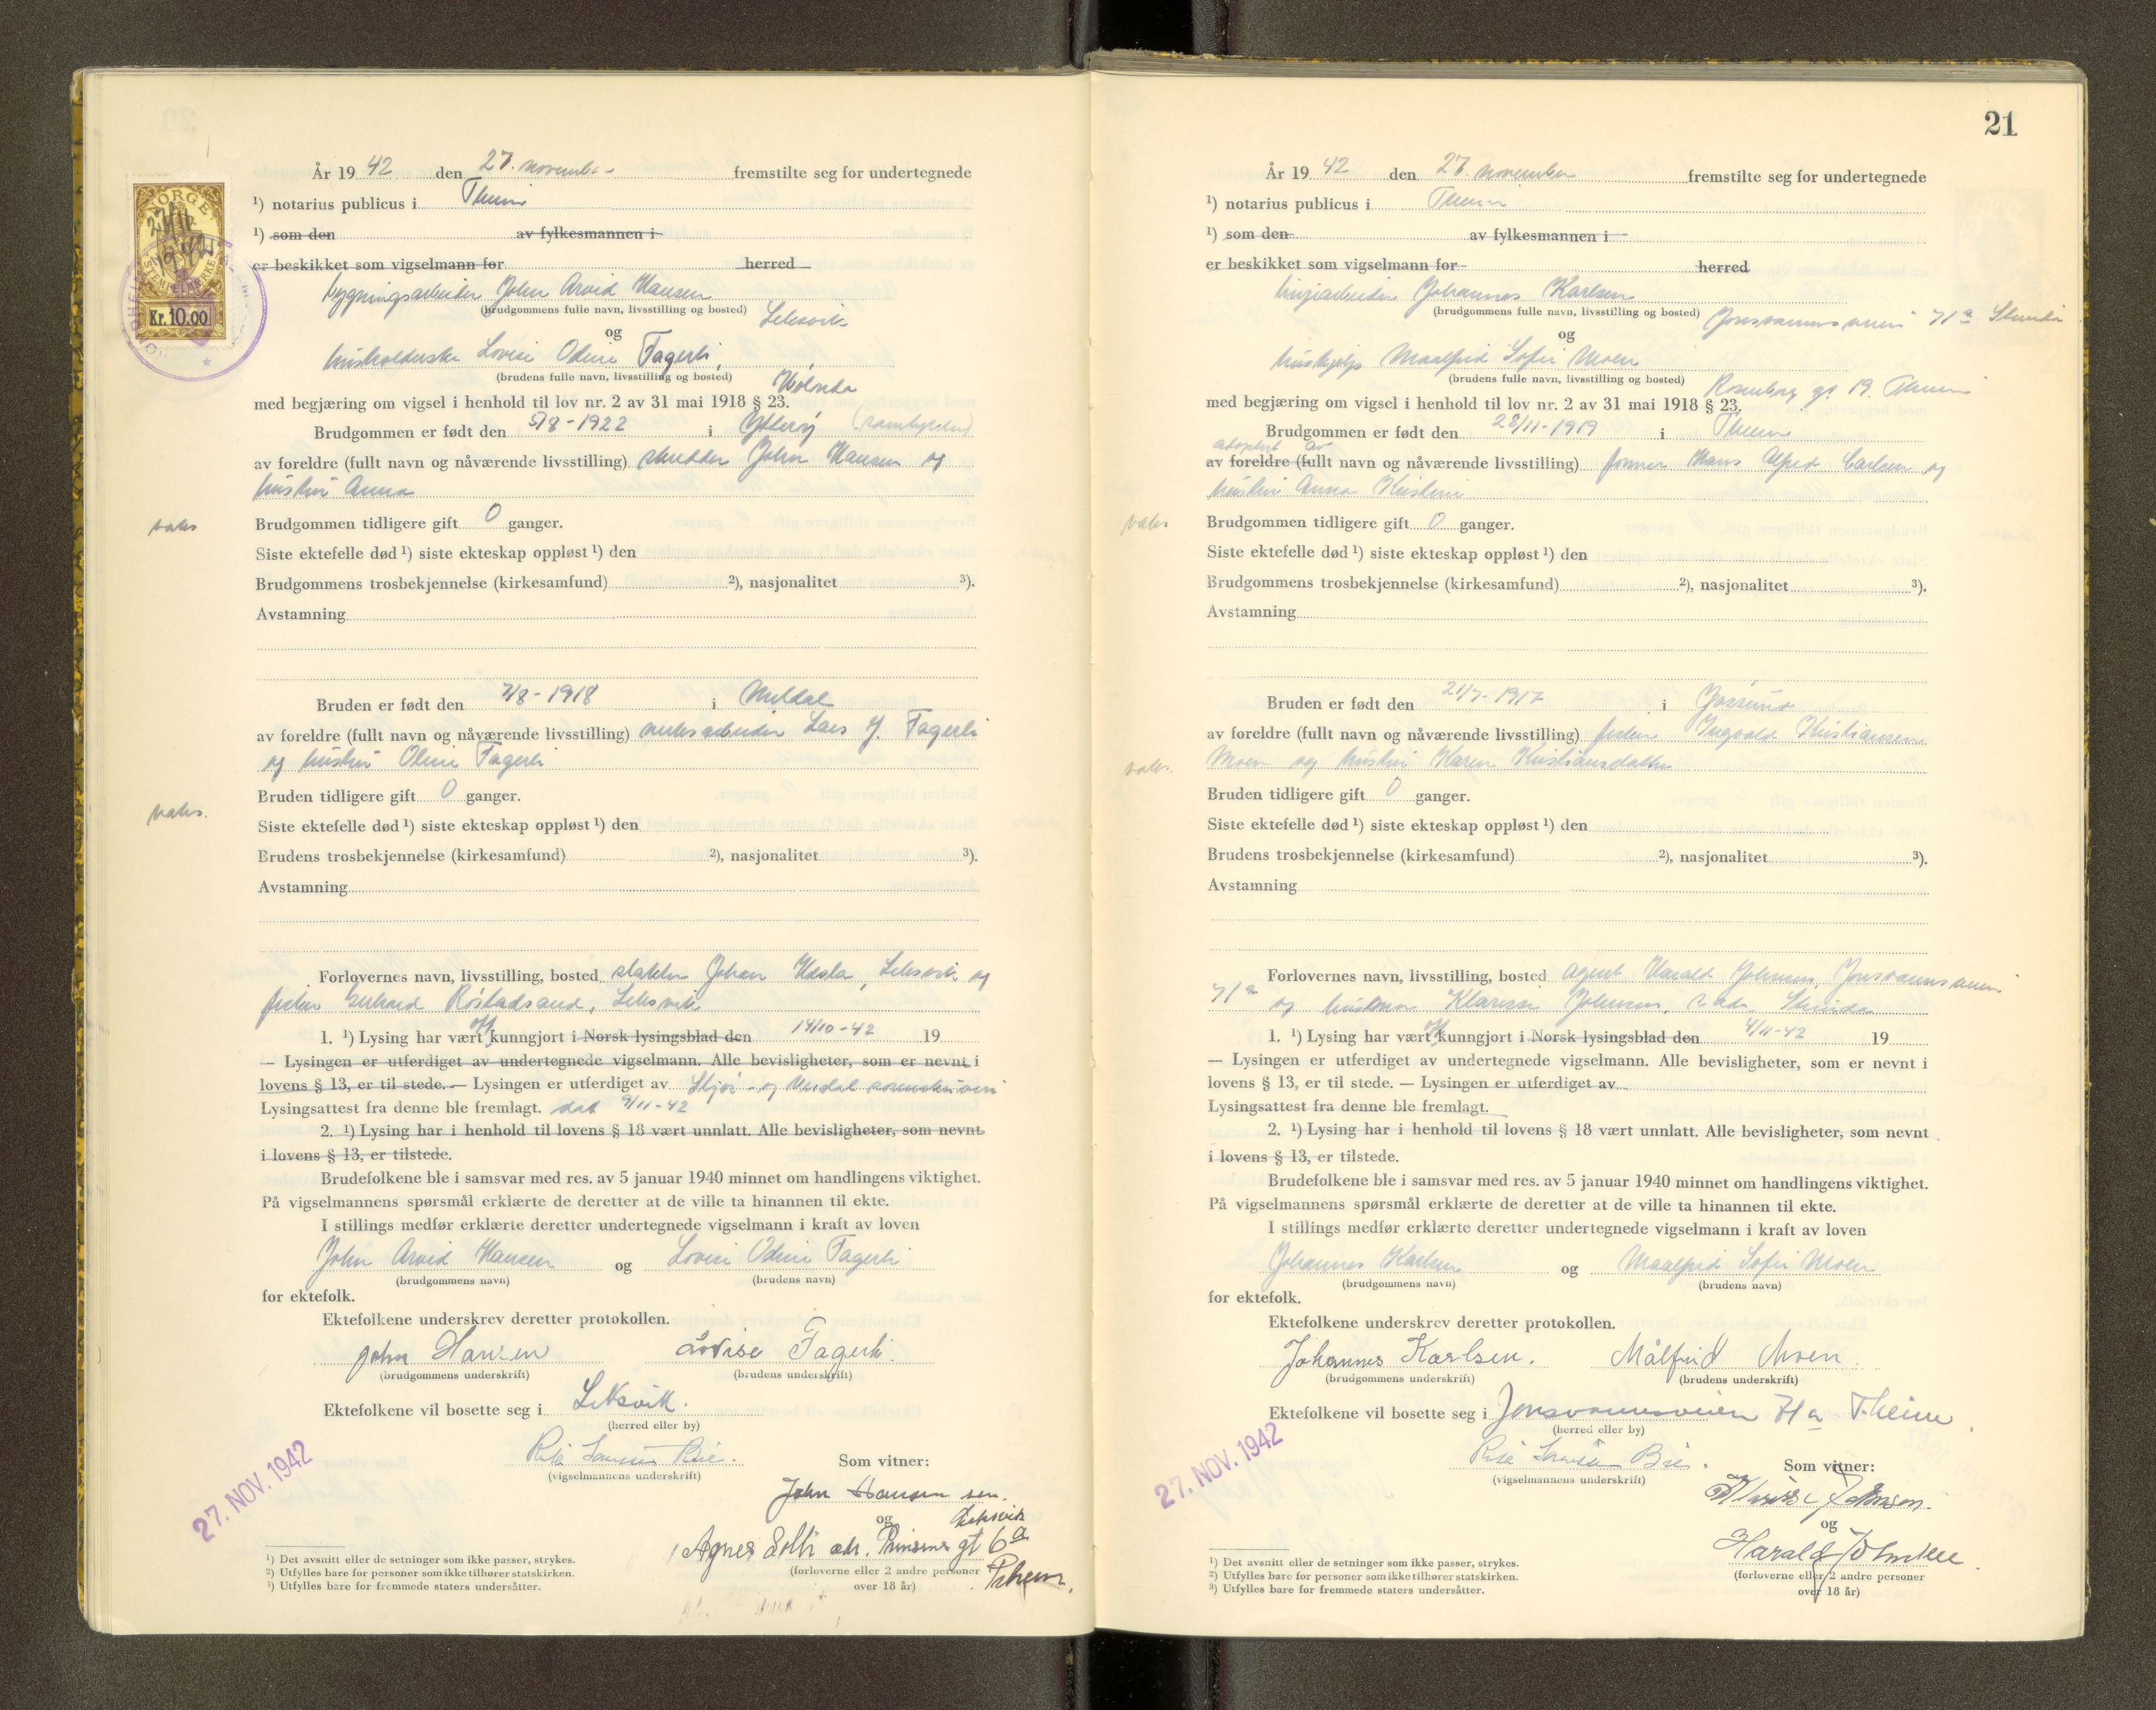 År 19 42 den 27. november fremstilte seg for undertegnede
¹) notarius publicus i Theim
¹) som den av fylkesmannen i
er beskikket som vigselmann for herred
bygningsarbeider John Arvid Hansen
(brudgommens fulle navn, livsstilling og bosted) Leksvik
og
husholderske Lovise Odine Fagerli,
(brudens fulle navn, livsstilling og bosted) Hølonda
med begjæring om vigsel i henhold til lov nr. 2 av 31 mai 1918 § 23.
Brudgommen er født den 5/8 - 1922 i Ytterøy
av foreldre (fullt navn og nåværende livsstilling) skredder John Hansen og
hustru Anna
vaks
Brudgommen tidligere gift 0 ganger.
Siste ektefelle død ¹) siste ekteskap oppløst ¹) den
Brudgommens trosbekjennelse (kirkesamfund) ²), nasjonalitet ³).
Avstamning
Bruden er født den 7/8 - 1918 i Meldal
av foreldre (fullt navn og nåværende livsstilling) verksarbeider Lars J. Fagerli
og hustru Oline Fagerli
Bruden tidligere gift 0 ganger.
vaks.
Siste ektefelle død ¹) siste ekteskap oppløst ¹) den
Brudens trosbekjennelse (kirkesamfund) ²), nasjonalitet ³).
Avstamning
Forlovernes navn, livsstilling, bosted Johan Leksvik og
fisker Røstadsand, Leksvik
1. ¹) Lysing har vært off kunngjort i Norsk lysingsblad den 14/10 - 42 19
— Lysingen er utferdiget av undertegnede vigselmann. Alle bevisligheter, som er nevnt i
lovens § 13, er til stede. — Lysingen er utferdiget av Stjør- og Verdal sorenskriveri
Lysingsattest fra denne ble fremlagt. dat 9/11 - 42
2. ¹) Lysing har i henhold til lovens § 18 vært unnlatt. Alle bevisligheter, som nevnt
i lovens § 13, er tilstede.
Brudefolkene ble i samsvar med res. av 5 januar 1940 minnet om handlingens viktighet.
På vigselmannens spørsmål erklærte de deretter at de ville ta hinannen til ekte.
I stillings medfør erklærte deretter undertegnede vigselmann i kraft av loven
John Arvid Hansen og Lovise Odine Fagerli
(brudgommens navn) (brudens navn)
for ektefolk.
Ektefolkene underskrev deretter protokollen.
John Hansen Lovise Fagerli.
(brudgommens underskrift) (brudens underskrift)
Ektefolkene vil bosette seg i Leksvik.
(herred eller by)
(vigselmannens underskrift) Som vitner:
27. NOV. 1942
John Hansen sen.
og Leksvik
Agnes Solli adr. Prinsens gt 6a
(forloverne eller 2 andre personer Trheim.
over 18 år)
¹) Det avsnitt eller de setninger som ikke passer, strykes.
²) Utfylles bare for personer som ikke tilhører statskirken.
³) Utfylles bare for fremmede staters undersåtter.
NORGE
27/11
1942
STEMPELMERKE
Kr. 10.00
21
År 19 42 den 27 november fremstilte seg for undertegnede
¹) notarius publicus i Theim
¹) som den av fylkesmannen i
er beskikket som vigselmann for herred
Johannes Karlsen
(brudgommens fulle navn, livsstilling og bosted) Jonsvannsveien 71a Strinda
og
hushjelp Maalfrid Sofie Moen
(brudens fulle navn, livsstilling og bosted) Rosenborg gt 19. Theim
med begjæring om vigsel i henhold til lov nr. 2 av 31 mai 1918 § 23.
Brudgommen er født den 28/11 - 1919 i Theim
adoptert av
av foreldre (fullt navn og nåværende livsstilling) former Hans Alfred Carlsen og
hustru Anna Kristine
vaks
Brudgommen tidligere gift 0 ganger.
Siste ektefelle død ¹) siste ekteskap oppløst ¹) den
Brudgommens trosbekjennelse (kirkesamfund) ²), nasjonalitet ³).
Avstamning
Bruden er født den 21/7 - 1917 i Jøssund
av foreldre (fullt navn og nåværende livsstilling) fisker Ingvald Kristiansen
Moen og hustru Karen Kristiansdatter
vaks.
Bruden tidligere gift 0 ganger.
Siste ektefelle død ¹) siste ekteskap oppløst ¹) den
Brudens trosbekjennelse (kirkesamfund) ²), nasjonalitet ³).
Avstamning
Forlovernes navn, livsstilling, bosted agent Harald Johnsen, Jonsvannsveien
71a og husmor Klarise Johnsen, Strinda
1. ¹) Lysing har vært off kunngjort i Norsk lysingsblad den 4/11 - 42 19
— Lysingen er utferdiget av undertegnede vigselmann. Alle bevisligheter, som er nevnt i
lovens § 13, er til stede. — Lysingen er utferdiget av
Lysingsattest fra denne ble fremlagt.
2. ¹) Lysing har i henhold til lovens § 18 vært unnlatt. Alle bevisligheter, som nevnt
i lovens § 13, er tilstede.
Brudefolkene ble i samsvar med res. av 5 januar 1940 minnet om handlingens viktighet.
På vigselmannens spørsmål erklærte de deretter at de ville ta hinannen til ekte.
I stillings medfør erklærte deretter undertegnede vigselmann i kraft av loven
Johannes Karlsen og Maalfrid Sofie Moen
(brudgommens navn) (brudens navn)
for ektefolk.
Ektefolkene underskrev deretter protokollen.
Johannes Karlsen. Målfrid Moen.
(brudgommens underskrift) (brudens underskrift)
Ektefolkene vil bosette seg i Jonsvannsveien 71a T.heim
(herred eller by)
(vigselmannens underskrift) Som vitner:
27. NOV. 1942
Johnsen.
og
Harald Johnsen.
(forloverne eller 2 andre personer
over 18 år)
¹) Det avsnitt eller de setninger som ikke passer, strykes.
²) Utfylles bare for personer som ikke tilhører statskirken.
³) Utfylles bare for fremmede staters undersåtter.